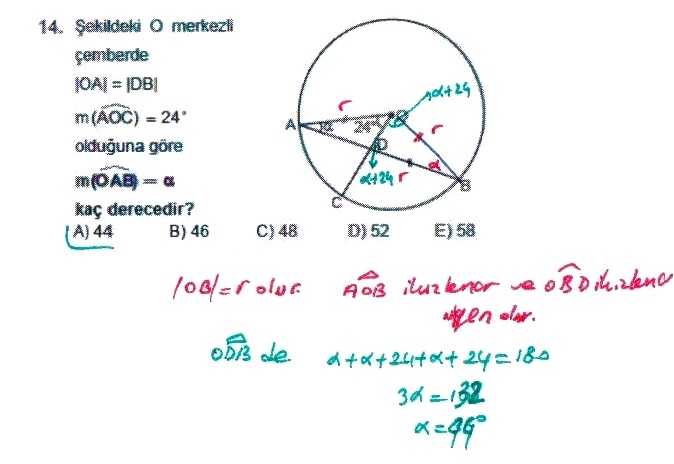 14. Şekildeki O merkezli
çemberde
|OA| = |DB|
m(AOC) = 24°
olduğuna göre
m(OAB) = α
kaç derecedir?
A) 44 B) 46 C) 48 D) 52 E) 58
A
α
r
24°
α+24
r
D
α+24
r
α
B
C
|OB|=r olur. AOB ikizkenar ve OBD ikizkenar
üçgen olur.
ODB de α+α+24+α+24=180
3α=132
α=44°